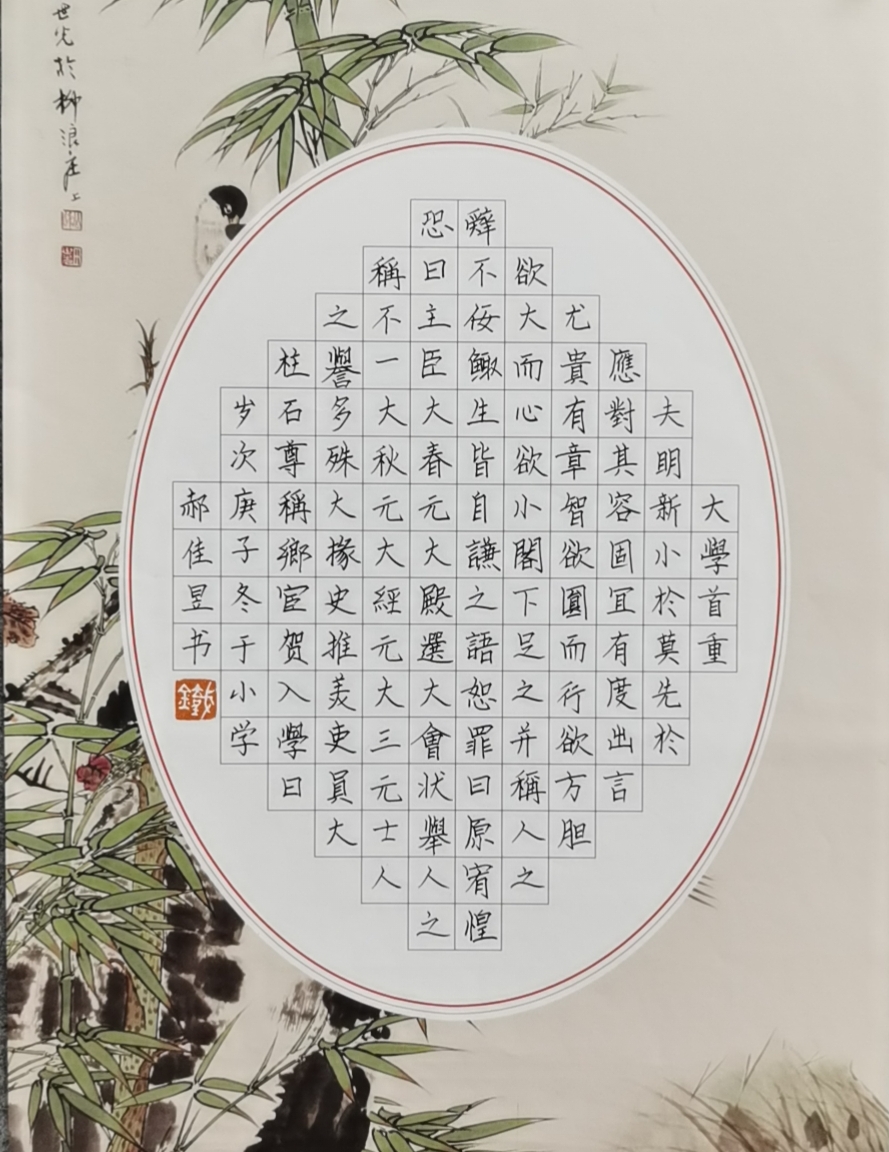 大學首重
夫明新小於莫先於
應對其容固宜有度出言
尤貴有章智欲圓而行欲方胆
欲大而心欲小閣下足之并稱人之
辭不佞鯫生皆自謙之語恕罪曰原宥惶
恐曰主臣大春元大殿選大會狀舉人之
稱不一大秋元大經元大三元士人
之譽多殊大掾史推美吏員大
柱石尊稱鄉宦贺入學曰
岁次庚子冬于小学
郝佳昱书
世光於柳浪